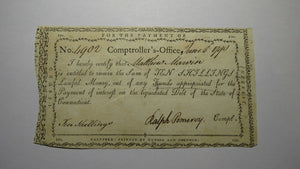 FOR THE PAYMENT OF
No. 4902 Comptroller's-Office, June 6 1791
I hereby certify that Matthew
is entitled to receive the Sum of TEN SHILLINGS
Lawful Money, out of any Funds appropriated for the
Payment of interest on the liquidated Debt of the State of
Connecticut.
Ten Shillings Ralph Pomeroy Compt.
HARTFORD: PRINTED BY HUDSON AND GOODWIN.